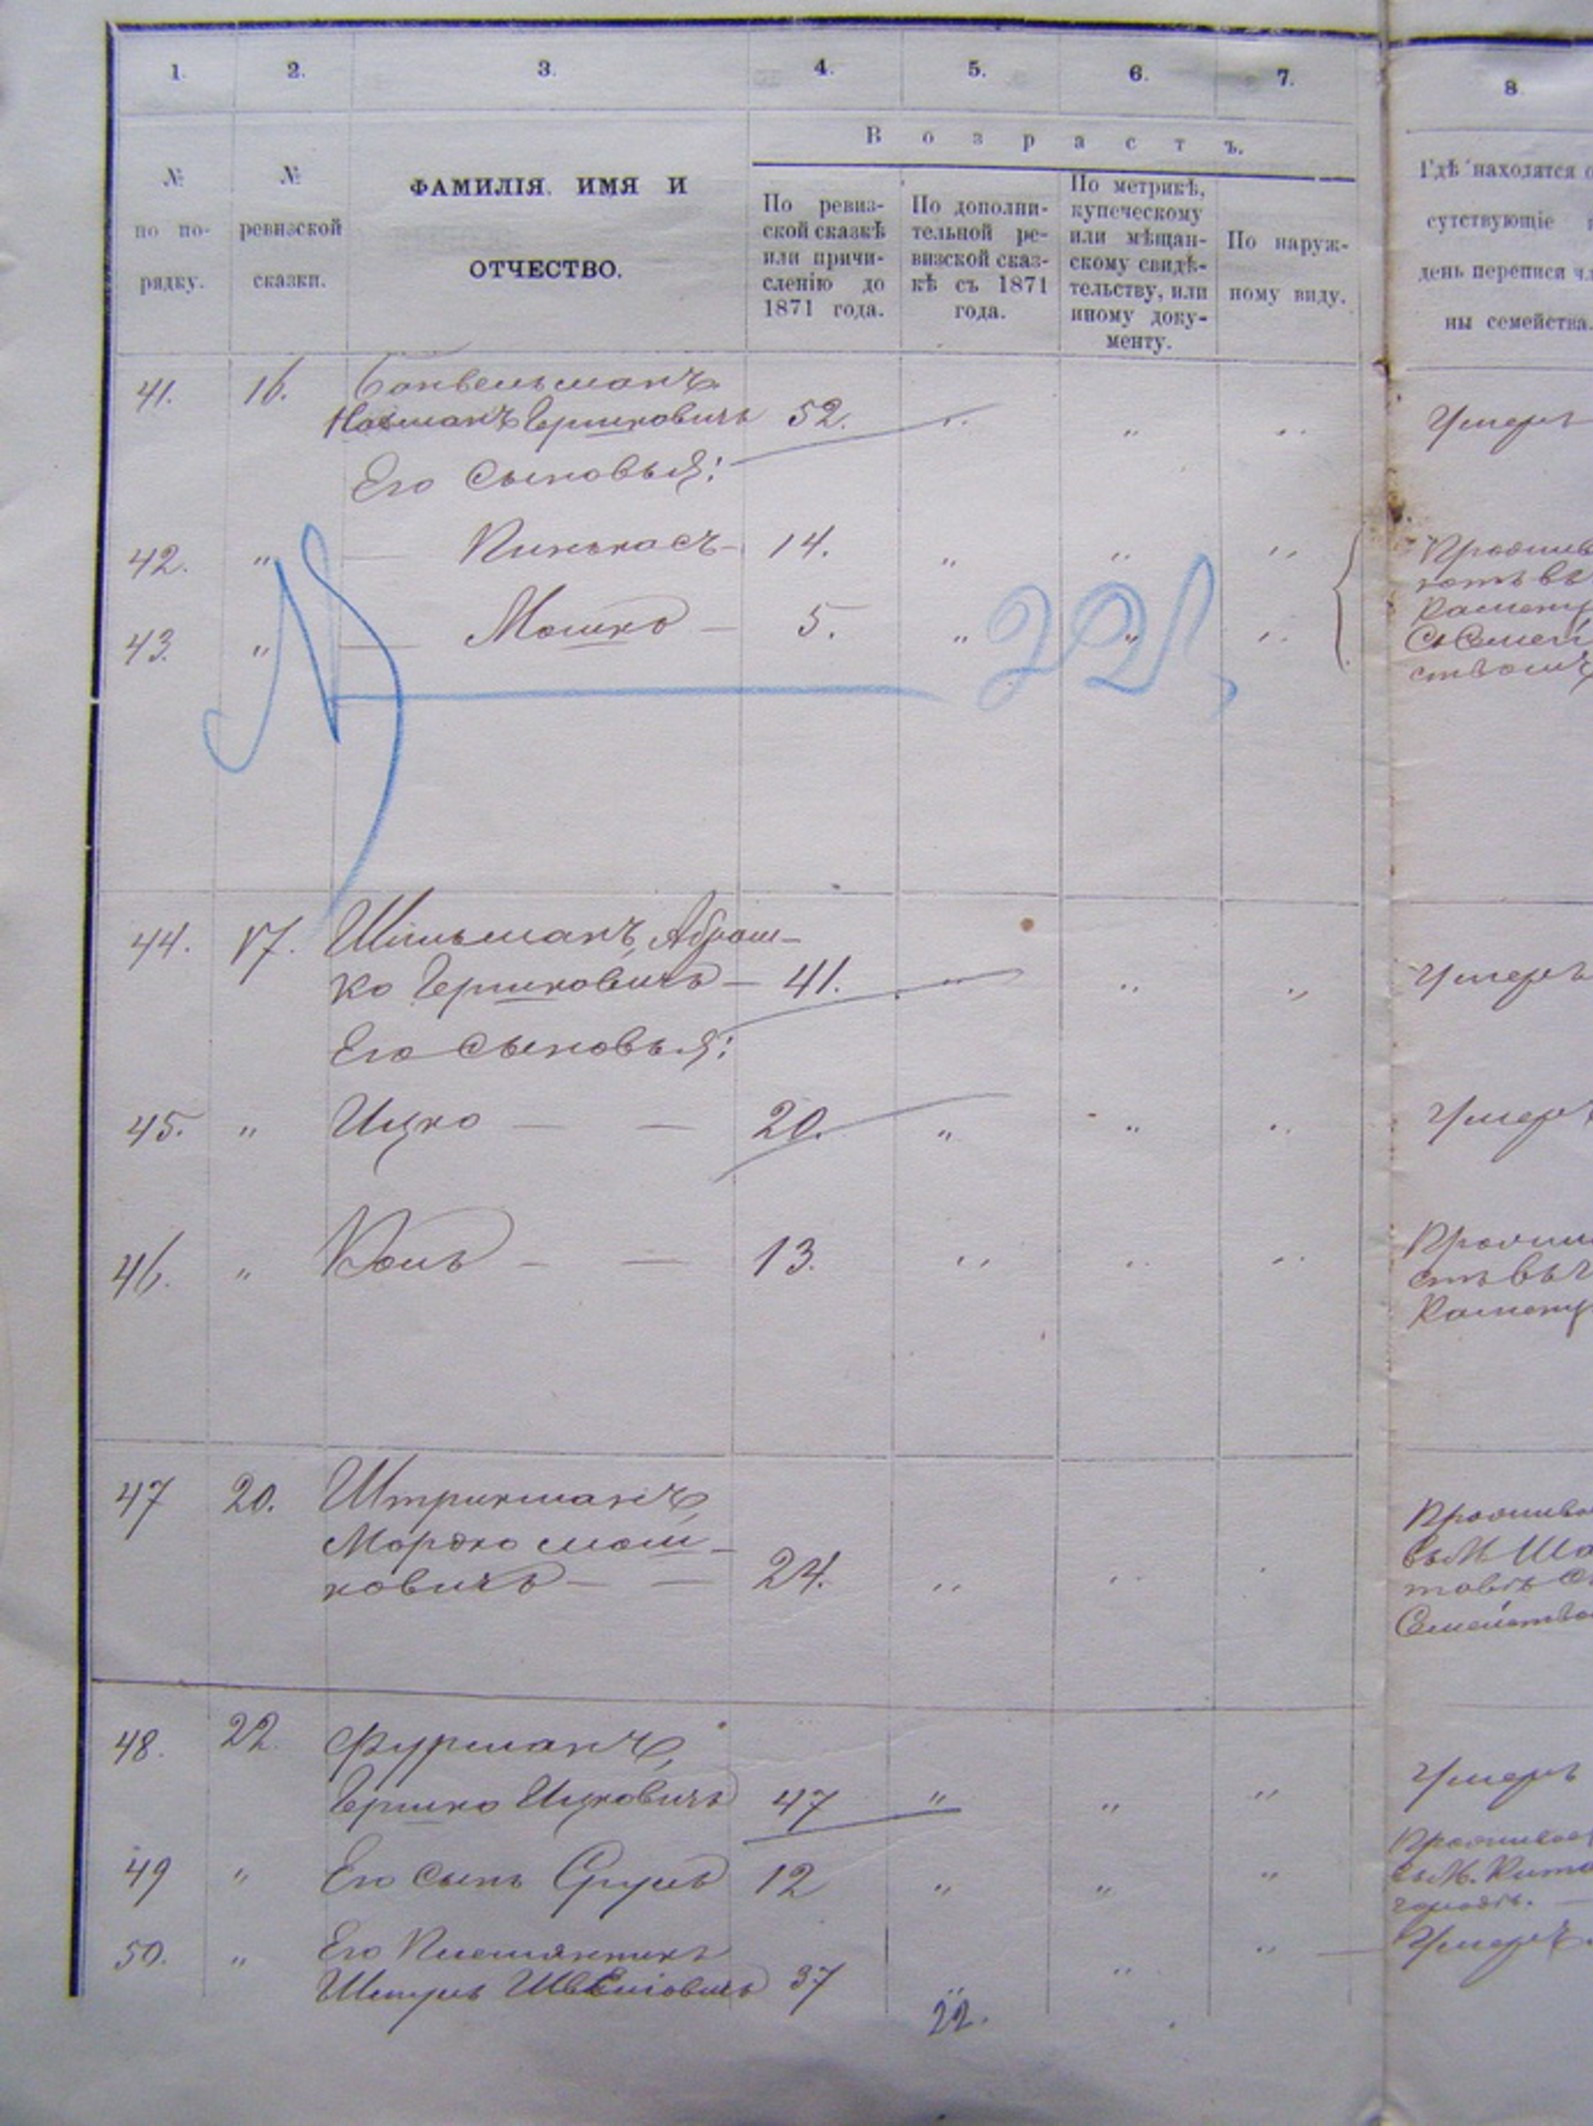 1. 2. 3. 4. 5. 6. 7. 8
№ по по- рядку.
№ ревизской сказки.
ФАМИЛІЯ, ИМЯ И
ОТЧЕСТВО.
Возрастъ.
По ревиз-
ской сказкѣ
или причи-
сленію до
1871 года.
По дополни-
тельной ре-
визской сказ-
кѣ съ 1871
года.
По метрикѣ,
купеческому
или мѣщан-
скому свидѣ-
тельству, или
иному доку-
менту.
По наруж-
ному виду.
Гдѣ находятся о
сутствующіе
день переписи чл
ны семейства.
41. 16.
Нахманъ Гершковичъ 52. " " " Умеръ
Его Сыновья:
42. " — Пинькасъ — 14. " " "
43. " — Мошко — 5. " " "
Прожив
ютъ въ
Каменц
Съ Семей
ствомъ
№ 221,
44. 17. Шильманъ, Абрам-
ко Гершковичъ — 41. " " " Умеръ
Его Сыновья:
45. " Ицко — — 20. " " " Умеръ
46. " — — 13. " " "
Прожив
етъ въ г
Каменц
47 20. Штрикманъ,
Мордко Мош-
ковичъ — — 24. " " "
Прожива
въ М. Ша
товѣ съ
Семейство
48. 22. Фурманъ,
Гершко Ицковичъ 47 " " " Умеръ
49 " Его сынъ Сруль 12 " " "
Проживает
въ М. Кита
городѣ. —
50. " Его Племянникъ " — Умеръ
Шмуль 37 " "
22.